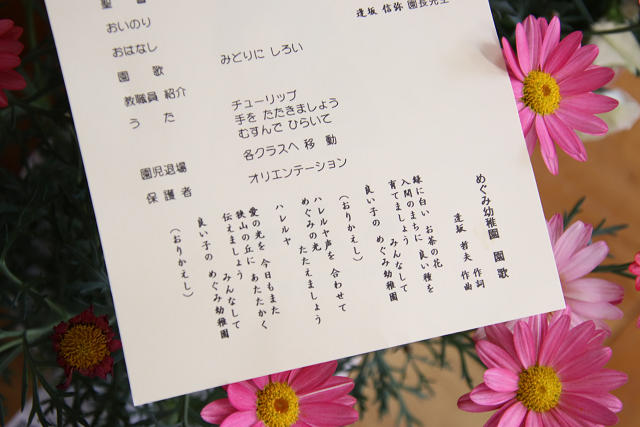 聖書
逢坂 信弥 園長先生
おいのり
おはなし
園 歌
みどりに しろい
教職員 紹介
うた
チューリップ
手を たたきましょう
むすんで ひらいて
各クラスへ 移 動
園児退場
保護者
オリエンテーション
めぐみ幼稚園 園歌
逢坂 哲夫 作詞 作曲
緑に白い お茶の花
入間のまちに 良い種を
育てましょう みんなして
良い子の めぐみ幼稚園
(おりかえし)
ハレルヤ声を 合わせて
めぐみの光 たたえましょう
ハレルヤ
愛の光を 今日もまた
狭山の丘に あたたかく
伝えましょう みんなして
良い子の めぐみ幼稚園
(おりかえし)